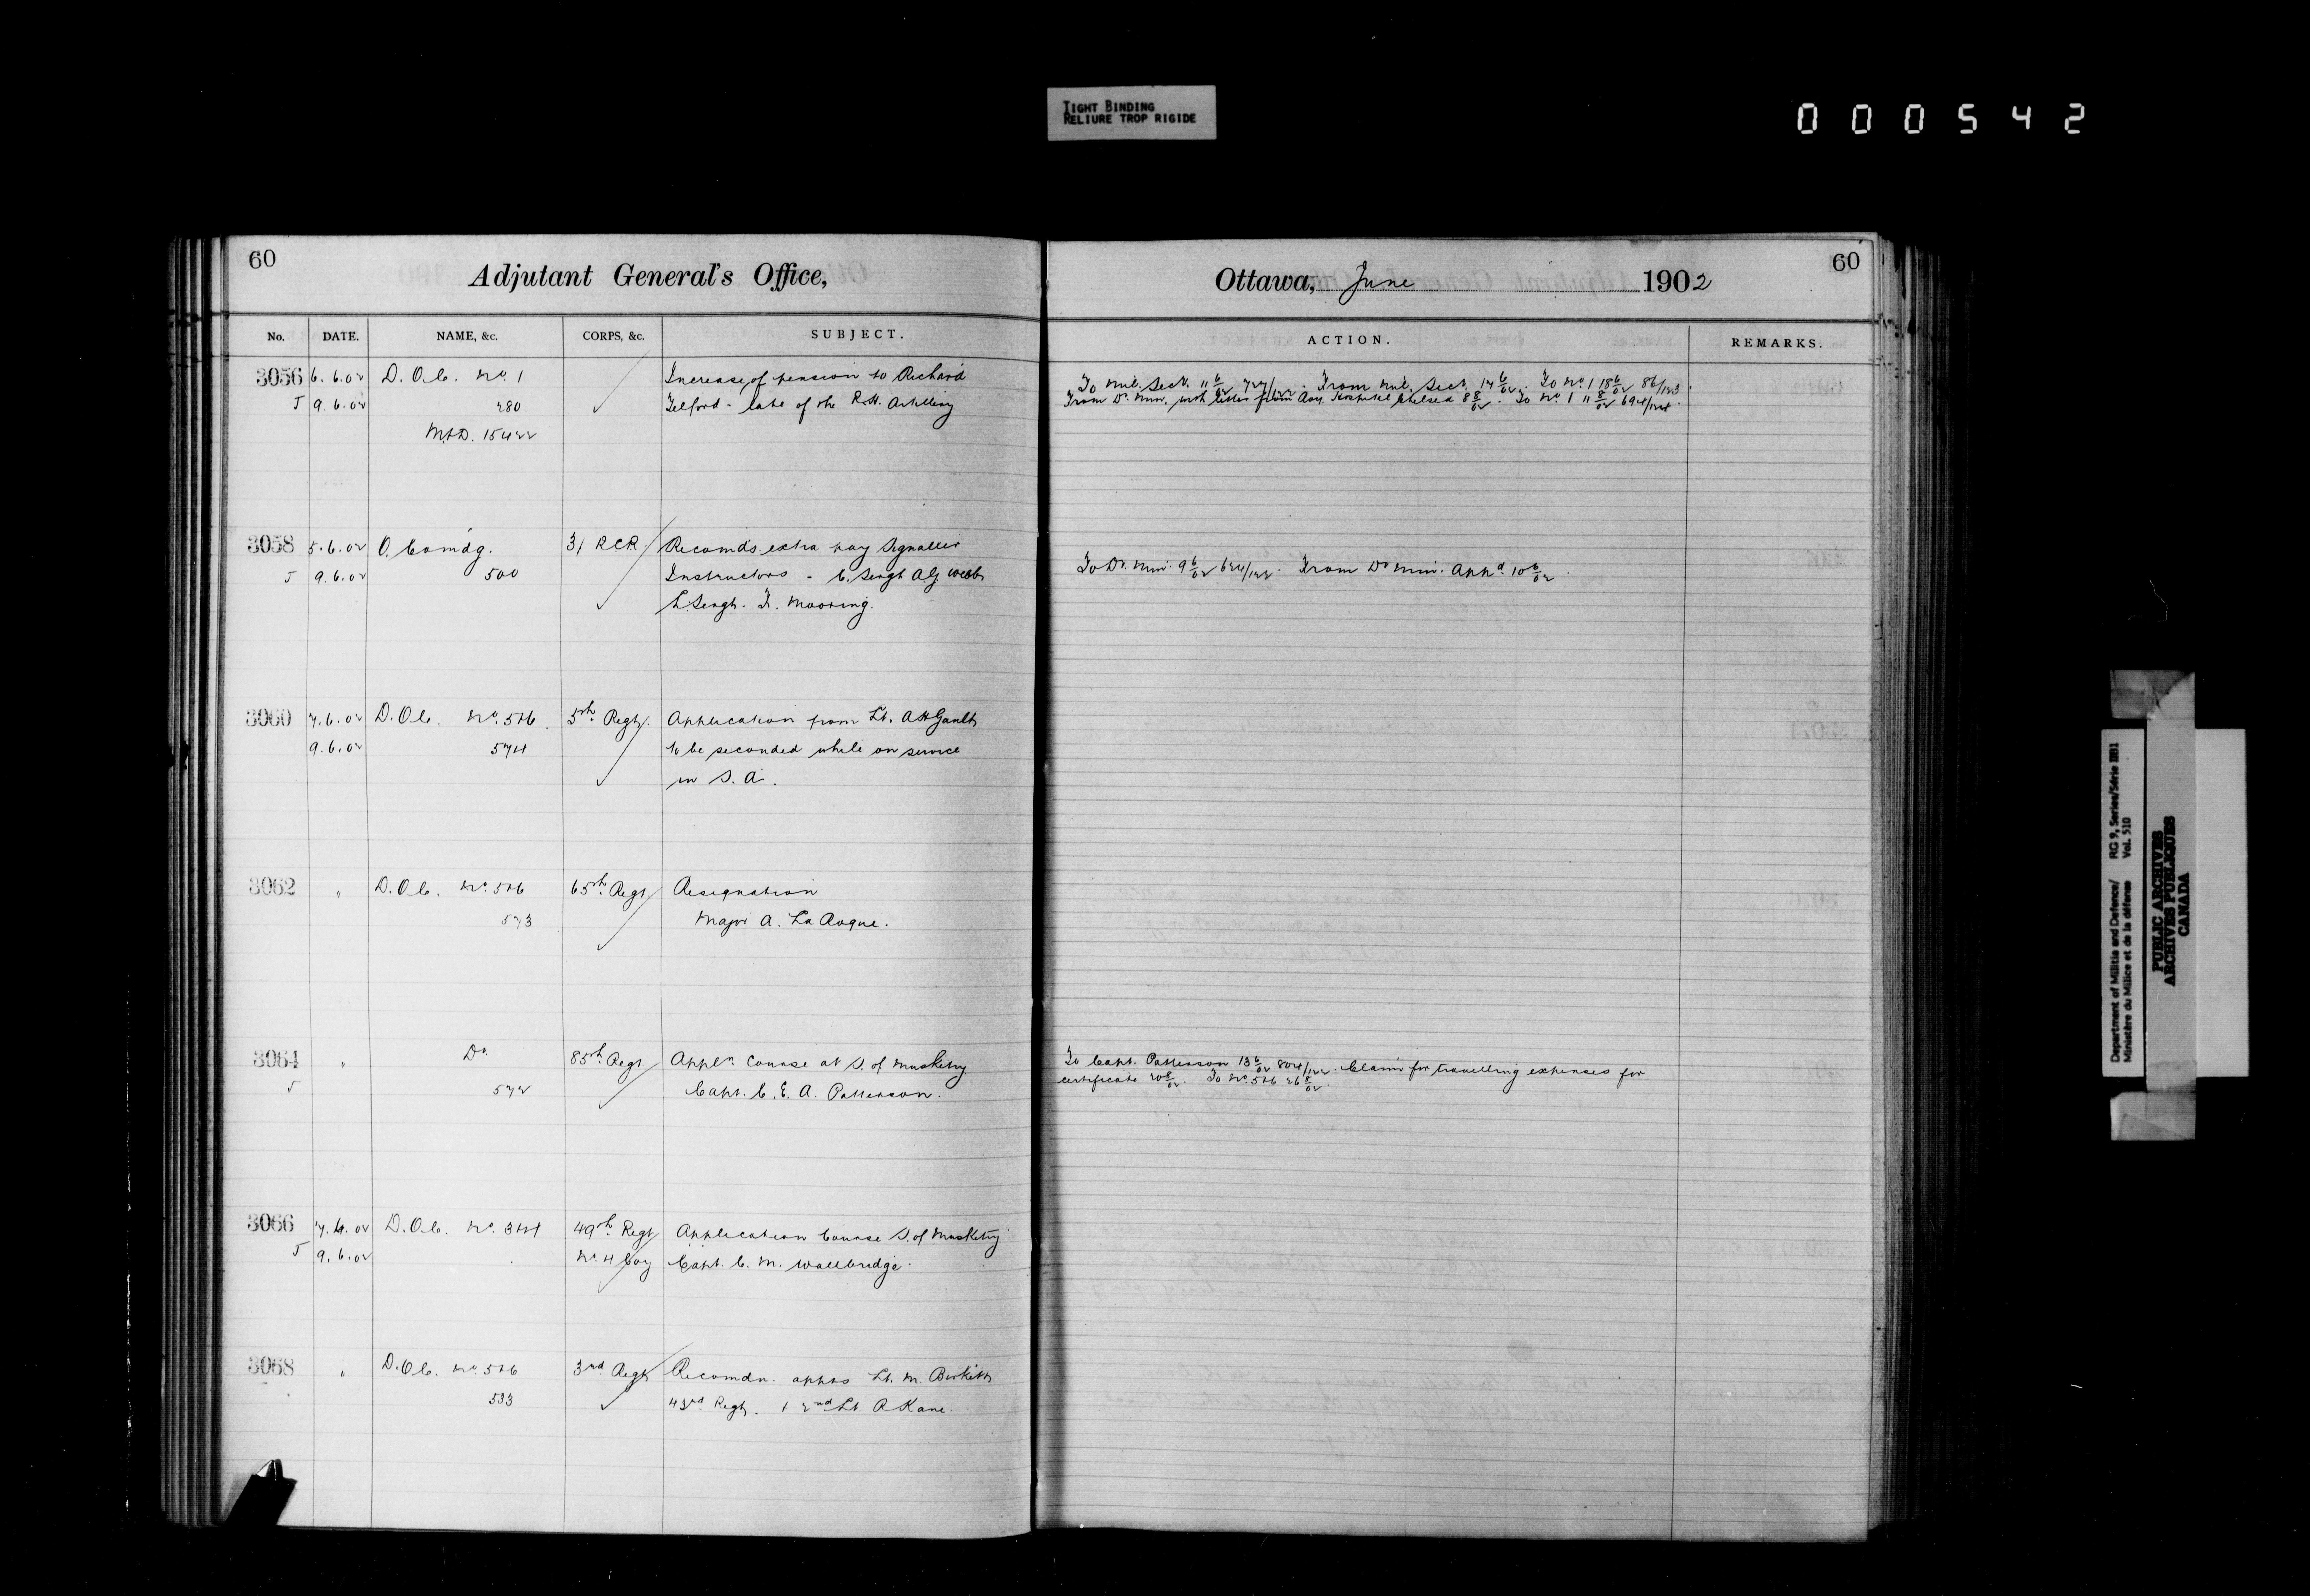 TIGHT BINDING
RELIURE TROP RIGIDE
000542
60
Adjutant General's Office,
No. DATE. NAME, &c. CORPS, &c. SUBJECT.
3056 6.6.02 D.O.C. No. 1 Increase of pension to Richard
J 9.6.02 280 Telford - late of the R.H. Artillery
M&D. 15422
3058 5.6.02 O. Comdg. 3/ RCR. Recomds. extra pay Signaller
J 9.6.02 500 Instructors - C. Sergt A.G. Webb
L. Sergt. F. Mooring.
3060 7.6.02 D.O.C. No. 5&6. 5th Regt. Application from Lt. A H Gault
9.6.02 574 to be seconded while on service
in S.A.
3062 " D.O.C. No. 5&6 65th Regt. Resignation
573 Major A. La Roque.
3064 " Do. 85th Regt Appln. Course at S. of Musketry
J 572 Capt. C. E. A. Patterson.
3066 7.6.02 D.O.C. No. 3&4 49th Regt Application Course S. of Musketry
J 9.6.02 No. 4 Coy Capt. C. M. Wallbridge.
3068 " D.O.C. No. 5&6 3rd Regt Recomdn. appts Lt. M. Birkett
533 43rd Regt. & 2nd Lt. A Kane.
60
Ottawa, June 1902
ACTION. REMARKS.
To Mil. Sect. 11 6/02 727/122. From Mil. Sect. 14 6/02. To No. 1 18 6/02 86/123.
From D. Min. with letter from Hospital Chelsea 8 8/02. To No. 1 11 8/02 694/124.
To D. Min. 9 6/02 624/122. From D Min. Appd. 10 6/02.
To Capt. Patterson 13 6/02 804/122. Claim for travelling expenses for
certificate 20 8/02. To No. 5&6 26 8/02.
Department of Militia and Defence/ RG 9, Series/Série IIB1
Ministère du Milice et de la défense Vol. 510
PUBLIC ARCHIVES
ARCHIVES PUBLIQUES
CANADA